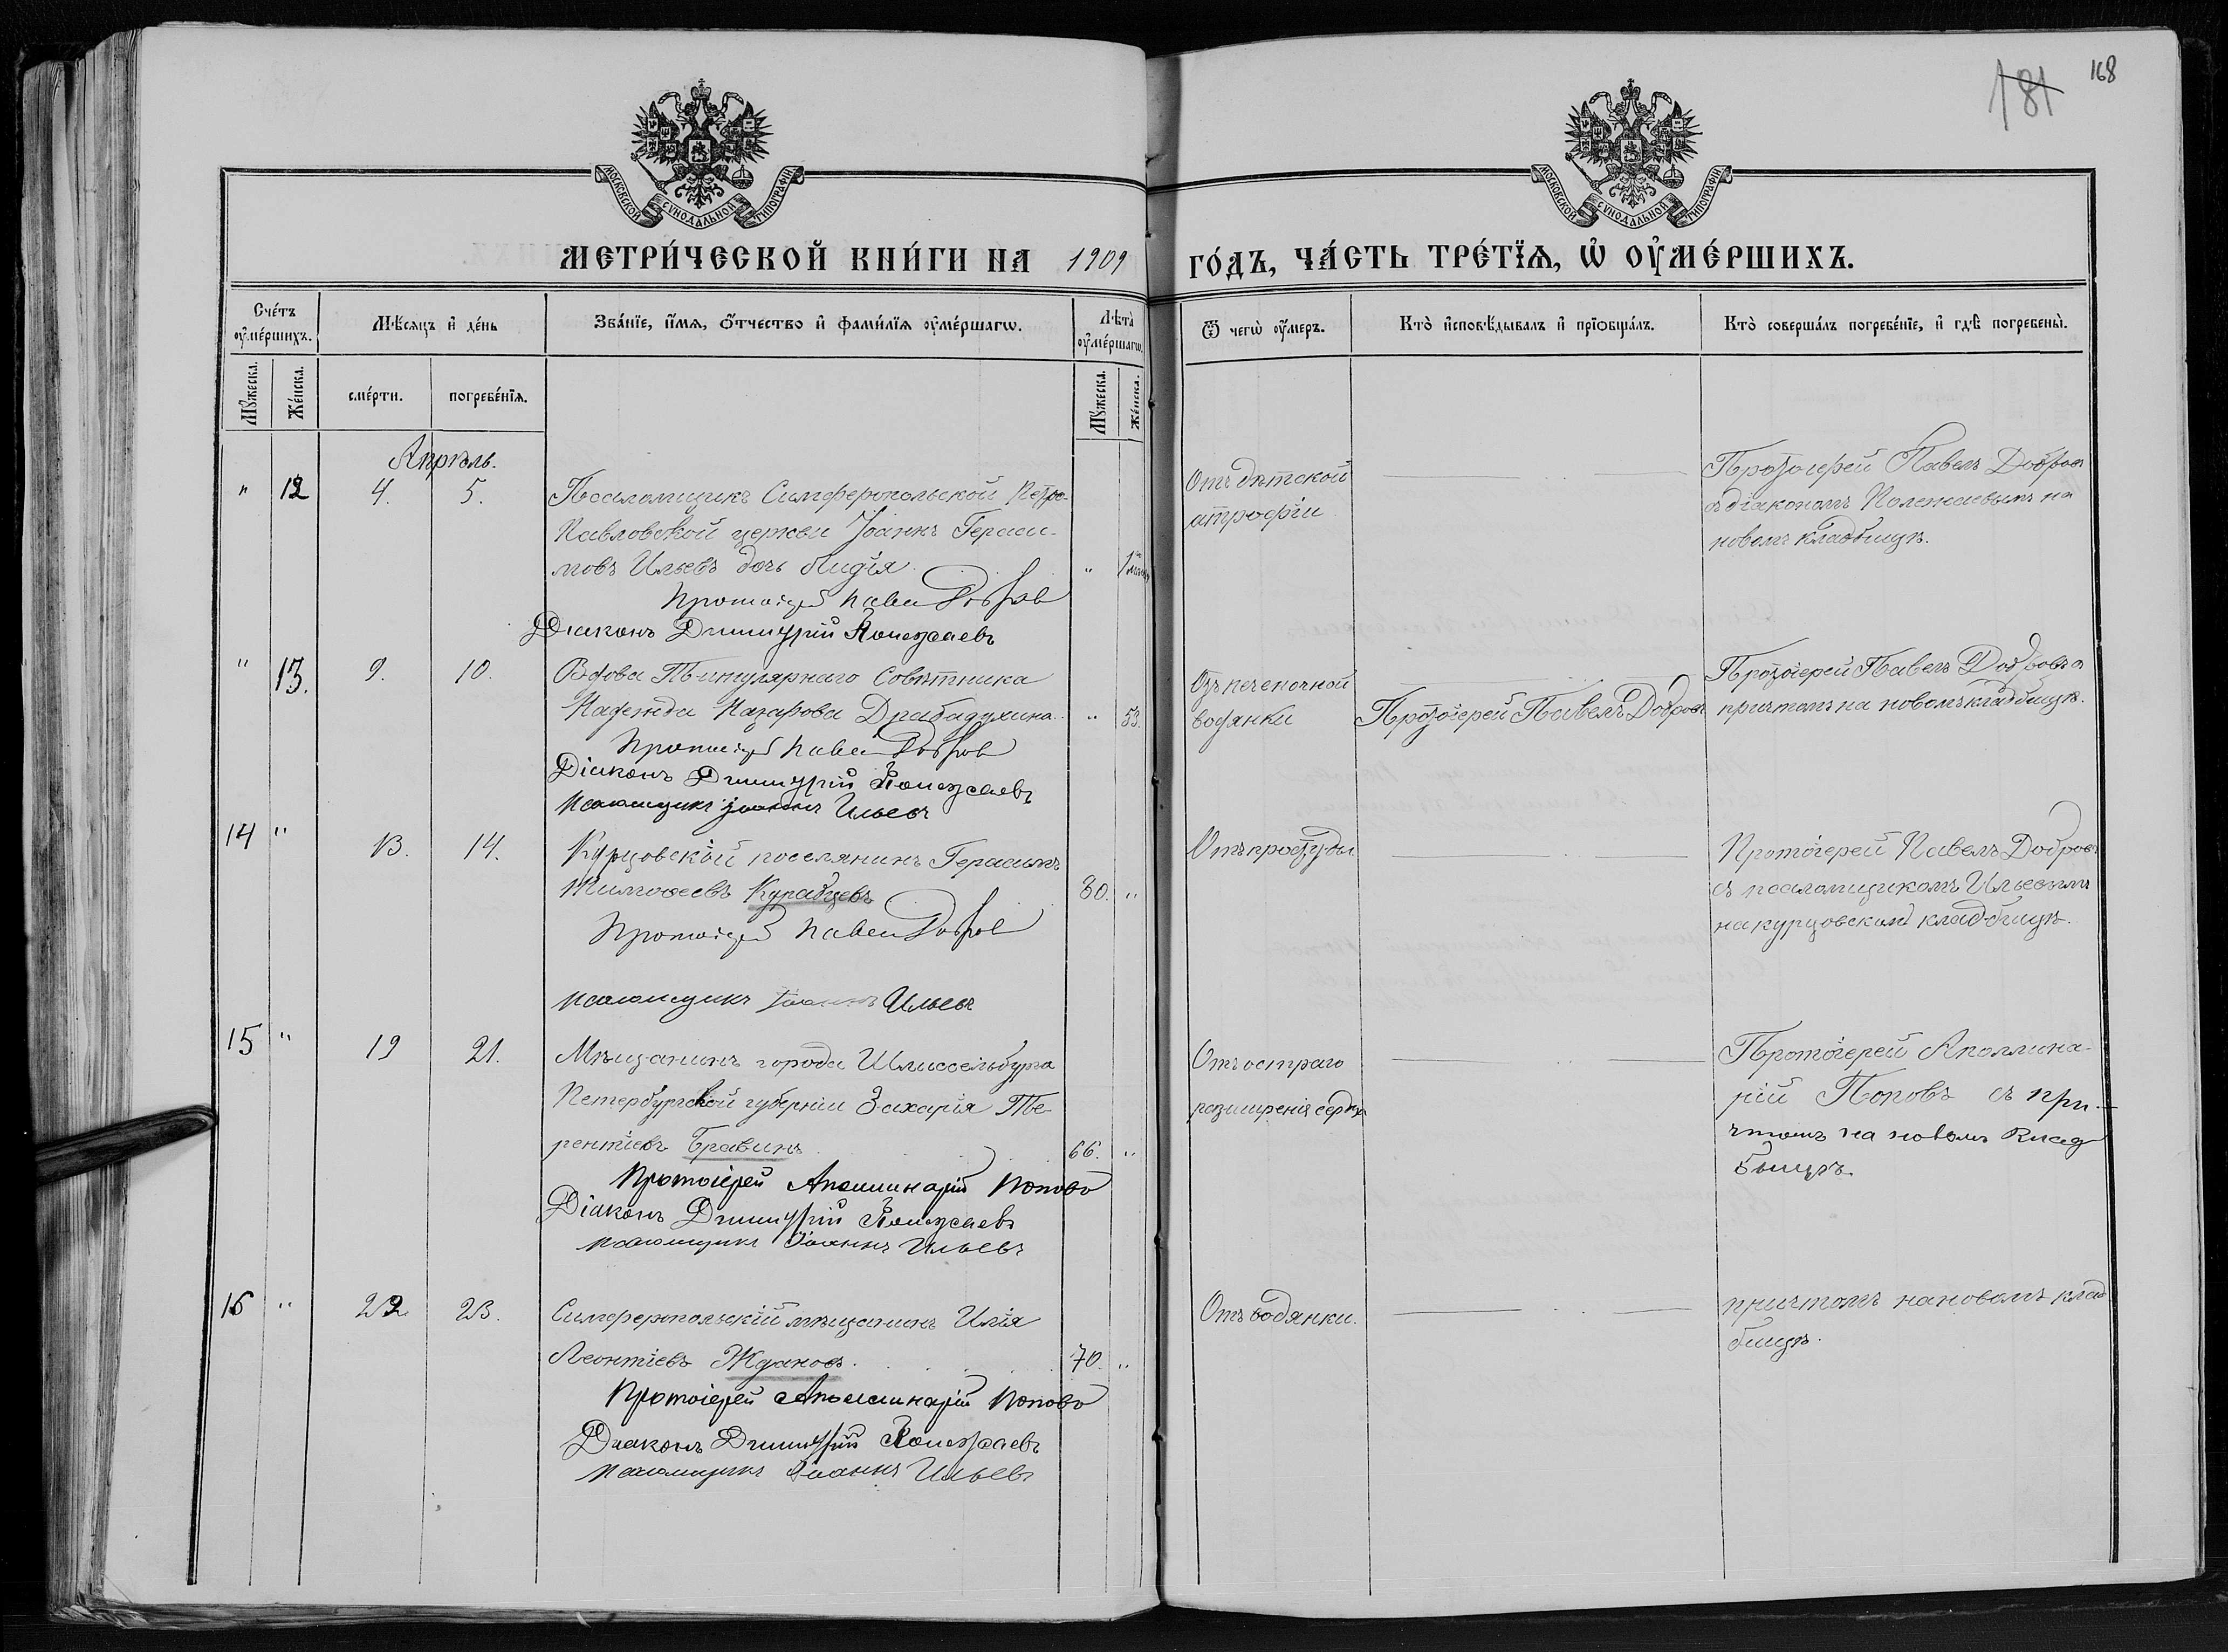 181 168
МОСКОВСКОЙ СѴНОДАЛЬНОЙ ТИПОГРАФІИ
МОСКОВСКОЙ СѴНОДАЛЬНОЙ ТИПОГРАФІИ
МЕТРИ́ЧЕСКОЙ КНИ́ГИ НА 1909 ГО́ДЪ, ЧА́СТЬ ТРЕ́ТЇѦ, Ѡ҆ ОУ҆МЕ́РШИХЪ.
Сче́тъ оу҆ме́ршихъ.
Мѣ́сѧцъ и҆ де́нь
Зва́нїе, и҆́мѧ, ѻ҆́тчество и҆ фами́лїѧ оу҆ме́ршагѡ.
Лѣ̀та̀ оу҆ме́ршагѡ.
Ѿ чегѡ̀ оу҆́меръ.
Кто̀ и҆сповѣ́дывалъ и҆ прїѡбща́лъ.
Кто̀ соверша́лъ погребе́нїе, и҆ гдѣ̀ погребены̀.
Мꙋ́жеска.
Же́нска.
сме́рти.
погребе́нїѧ.
Мꙋ́жеска.
Же́нска.
Апрѣль.
" 12 4. 5.
Псаломщикъ Симферопольской Петро-
Павловской церкви Іоаннъ Гераси-
мовъ Ильевъ дочь Лидія "
Протоіерей Павелъ Добровъ
Діаконъ Димитрій Полежаевъ
Отъ дѣтской
атрофіи
Протоіерей Павелъ Добровъ
съ діакономъ Полежаевымъ на
новомъ кладбищѣ.
" 13. 9. 10.
Вдова Титулярнаго Совѣтника
Надежда Назарова Драбадухина " 53.
Протоіерей Павелъ Добровъ
Діаконъ Димитрій Полежаевъ
Псаломщикъ Іоаннъ Ильевъ
Отъ печеночной
водянки
Протоіерей Павелъ Добровъ
Протоіерей Павелъ Добровъ съ
причтомъ на новомъ кладбищѣ.
14 " 13. 14.
Курцовскій поселянинъ Герасимъ
Тимофеевъ Курабцевъ 80. "
Протоіерей Павелъ Добровъ
Псаломщикъ Іоаннъ Ильевъ
Отъ простуды
Протоіерей Павелъ Добровъ
съ псаломщикомъ Ильевымъ
на курцовскомъ кладбищѣ.
15 " 19 21.
Мѣщанинъ города Шлиссельбурга
Петербургской губерніи Захарія Те-
рентіевъ Бравинъ 66. "
Протоіерей Аполлинарій Поповъ
Діаконъ Димитрій Полежаевъ
Псаломщикъ Іоаннъ Ильевъ
Отъ остраго
разширенія сердца
Протоіерей Аполлина-
рій Поповъ съ при-
чтомъ на новомъ клад
бищѣ.
16 " 22 23.
Симферопольскій мѣщанинъ Илія
Леонтіевъ Ждановъ. 70. "
Протоіерей Аполлинарій Поповъ
Діаконъ Димитрій Полежаевъ
Псаломщикъ Іоаннъ Ильевъ
Отъ водянки.
причтомъ на новомъ клад
бищѣ.